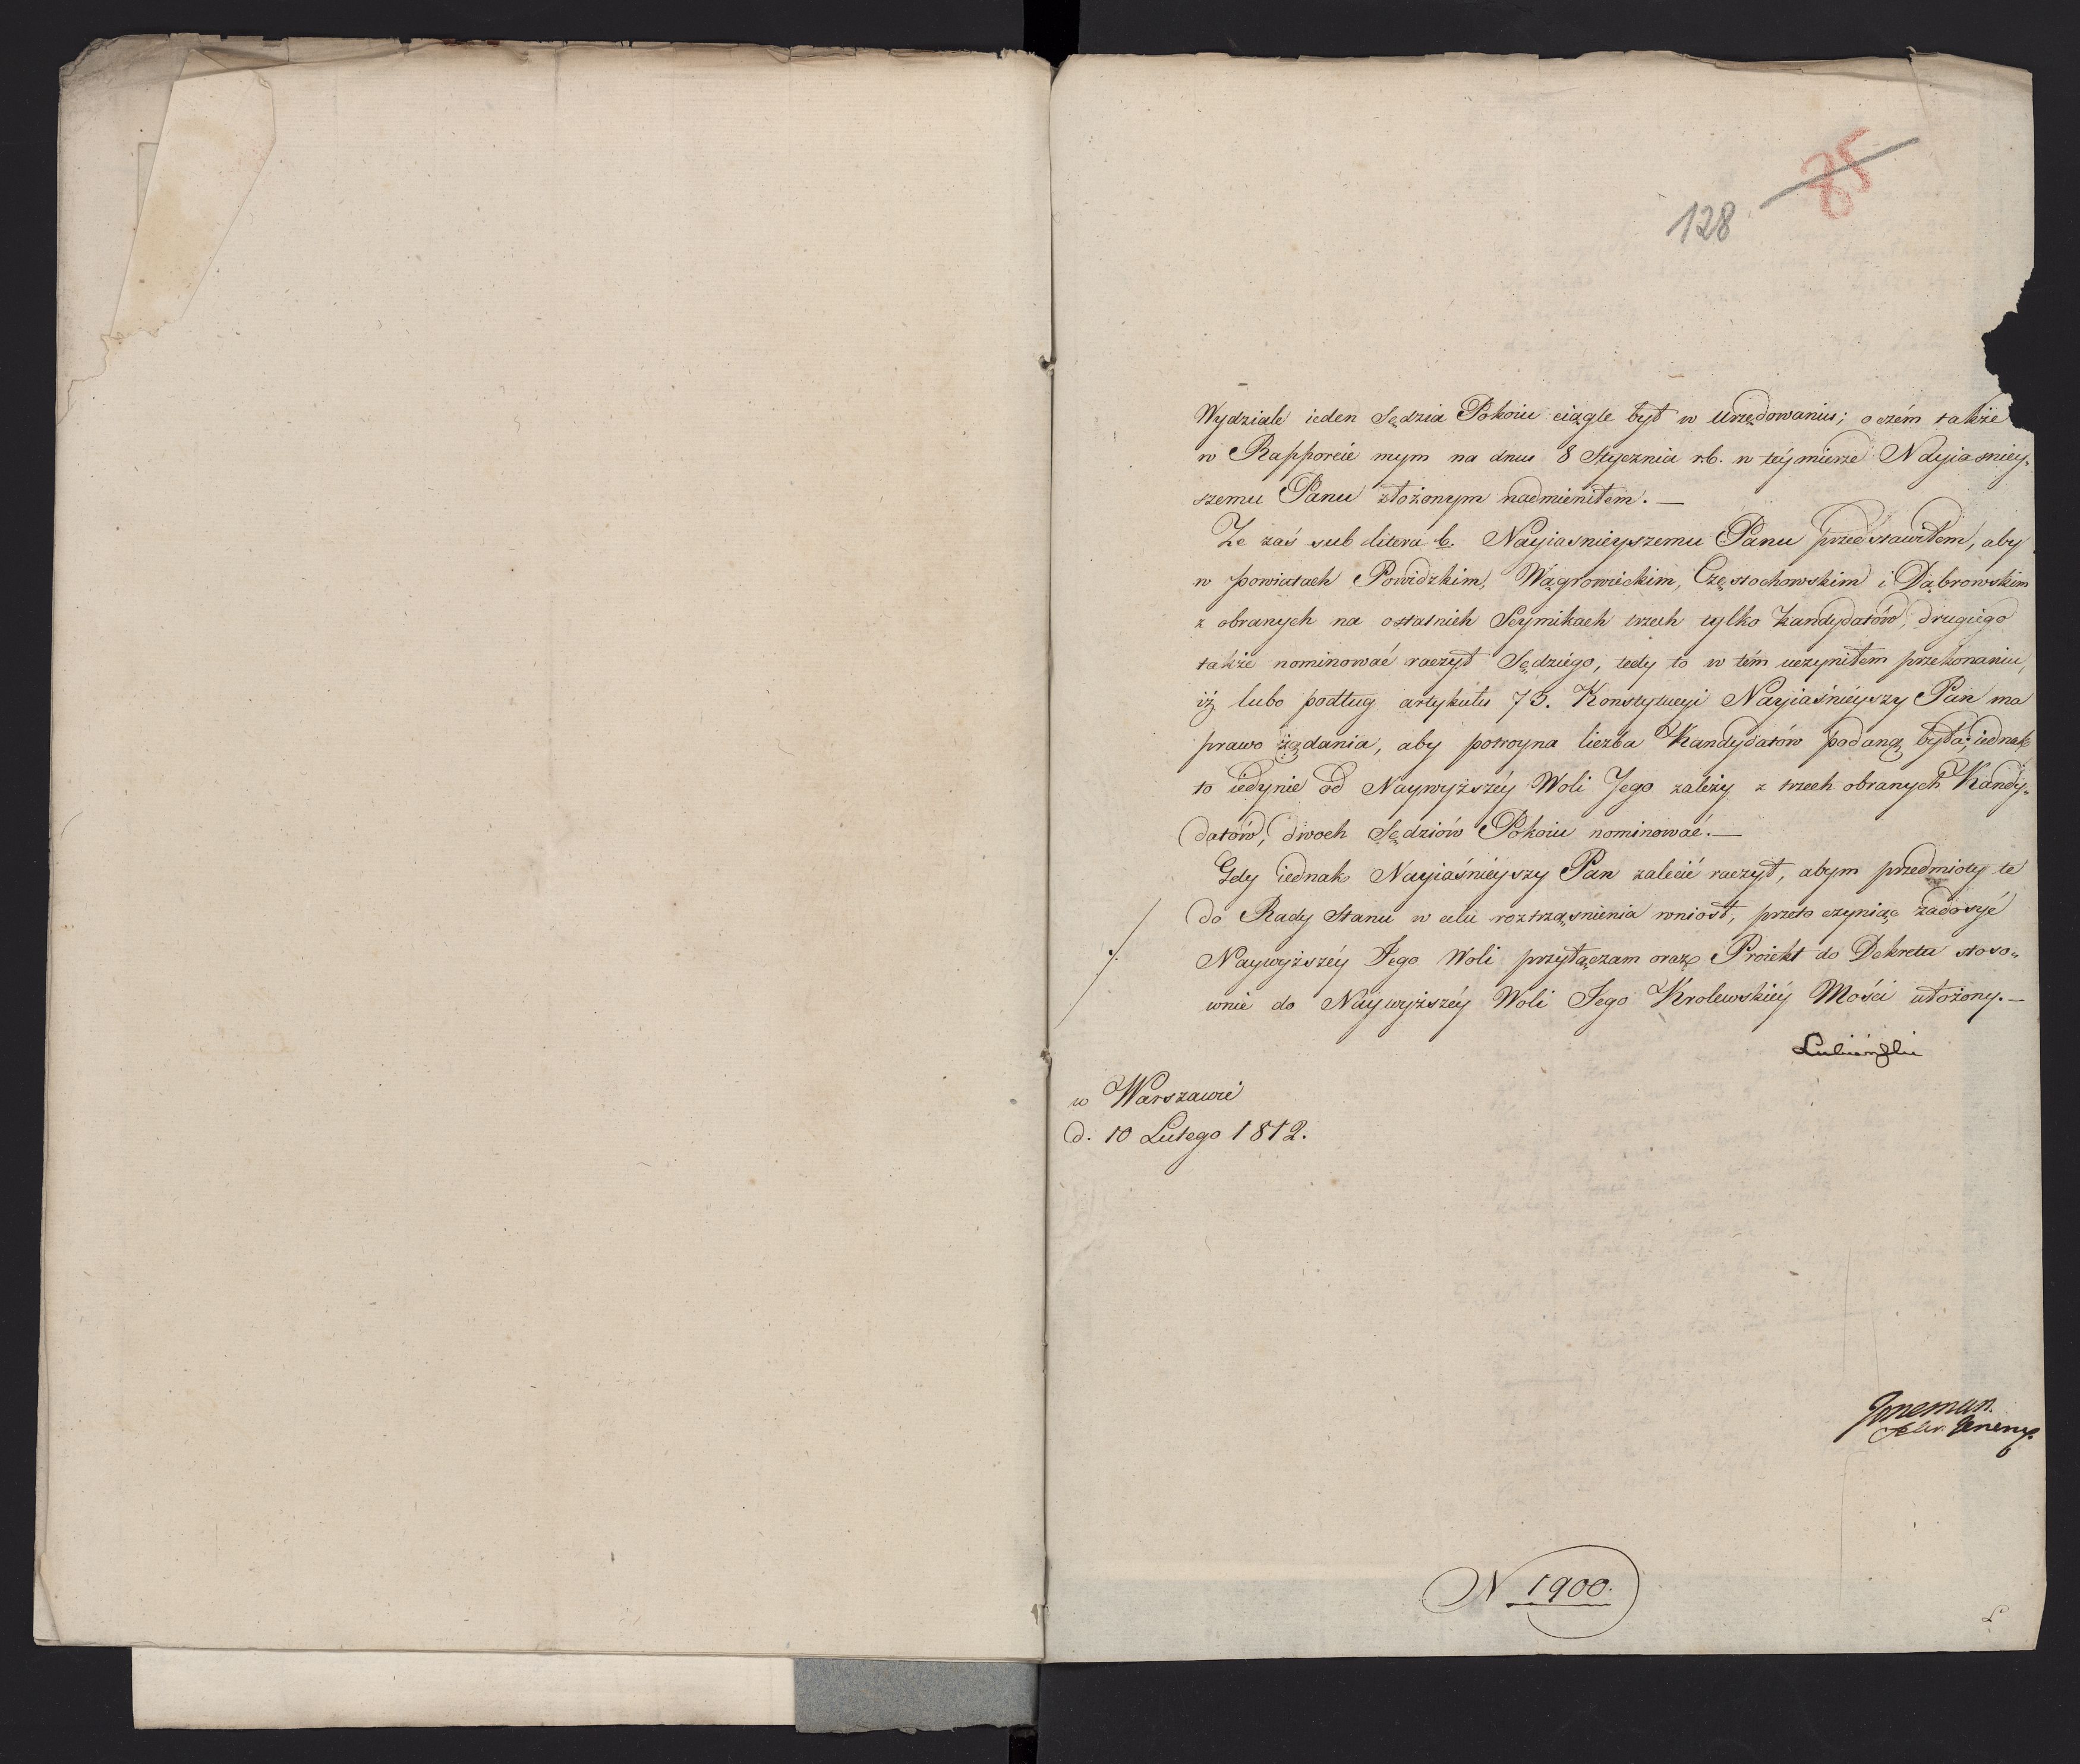 85
128
Wydziale ieden Sędzia Pokoiu ciągle był w Urzędowaniu; o czém także
w Rapporcie mym na dniu 8 Stycznia r.b. w téy mierze Nayiasniey-
szemu Panu złożonym nadmieniłem. —
Ze zaś sub litera b. Nayiasnieyszemu Panu przedstawiłem, aby
w powiatach Powidzkim, Wągrowieckim, Częstochowskim i Dąbrowskim
z obranych na ostatnich Seymikach trzech tylko Kandydatów, drugiego
także nominować raczył Sędziego, tedy to w tém uczyniłem przekonaniu,
iż lubo podług artykułu 73. Konstytucyi Nayiaśnieyszy Pan ma
prawo żądania, aby potroyna liczba Kandydatów podaną była; iednak
to iedynie od Naywyższéy Woli Jego zależy z trzech obranych Kandy-
datów, dwoch Sędziów Pokoiu nominować. —
Gdy iednak Nayiaśnieyszy Pan zalecić raczył, abym przedmioty te
do Rady Stanu w celu roztrząsnienia wniosł, przeto czyniąc zadosyć
Naywyższéy Jego Woli przyłączam oraz Proiekt do Dekretu stoso-
wnie do Naywyższéy Woli Jego Krolewskiéy Mości ułożony. —
Lubieński
w Warszawie
d. 10 Lutego 1812.
Sekr. Jenery.
N 1900.